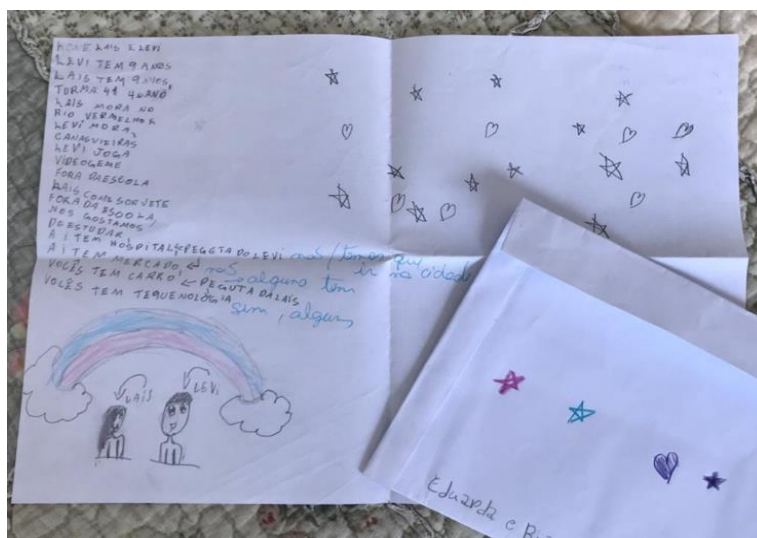 NOME LAIS E LEVI
LEVI TEM 9 ANOS
LAIS TEM 9 ANOS,
TORMA 41 4ºANO
LAIS MORA NO
RIO VERMELHO E
LEVI MORA,
CANAGVIEIRAS
LEVI JOGA
VIDEOGEME
FORA DAESCOLA
LAIS COME SORVETE
FORA DA ESCOLA,
NOS GOSTAMOS
DE ESTUDAR
A I TEM HOSPITAL PEGGTA DO LEVI não, temos que
ir na cidade
A I TEM MERCADO não
VOCÊS TEM CARRO PEGUTA DA LAIS alguns tem
VOCÊS TEM TEQUENOLOGIA sim, alguns
LAIS
LEVI
Eduarda e